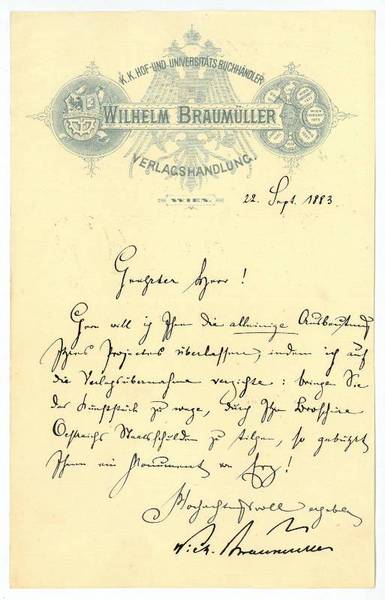 K.K. HOF- UND UNIVERSITÄTS BUCHHÄNDLER
WILHELM BRAUMÜLLER
VERLAGSHANDLUNG.
WIEN
22. Sept. 1883.
Geehrter Herr!
Gern will ich Ihnen die alleinige Ausbeutung
Ihres Projectes überlassen, indem ich auf
die Verlagsübernahme verzichte: bringen Sie
das Kunststück zu wege, durch Ihre Broschüre
Oestreichs Staatsschulden zu tilgen, so gebührt
Ihnen ein Monument von Erz!
Hochachtungsvoll ergeben
Wilh. Braumüller